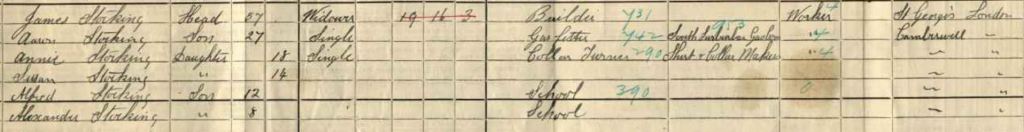 James Stocking Head 57 Widower 19 16 3 Builder 431 Worker 4 St Georges London
Aaron Stocking Son 27 Single Gas Fitter 442 South Suburban Gas Com 953 " 4 Camberwell "
Annie Stocking Daughter 18 Single Collar Turner 290 Shirt & Collar Makers " 4 " "
Susan Stocking " 14 " "
Alfred Stocking Son 12 School 390 0 " "
Alexander Stocking " 8 School " "